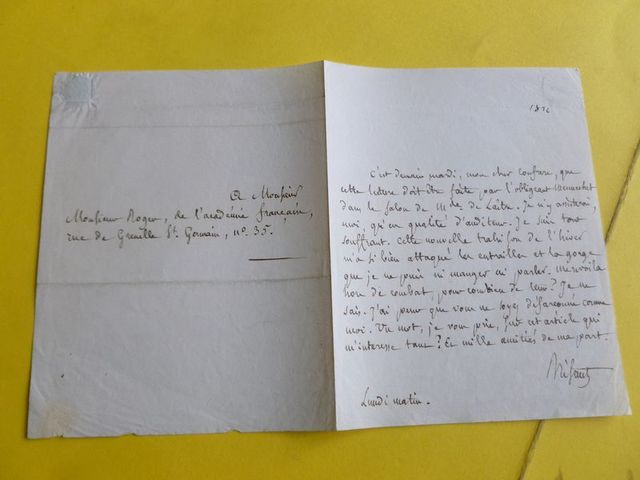 A Monsieur
Monsieur Roger, de l'académie française,
rue de Grenelle St. Germain, no. 35.
C'est demain mardi, mon cher confrère, que
cette lecture doit être faite, par l'obligeant Mennechet
dans le salon de Mde de
moi, qu'en qualité d'auditeur. Je suis tout
souffrant. Cette nouvelle trahison de l'hiver
m'a si bien attaqué les entrailles et la gorge
que je ne puis ni manger ni parler. me voilà
hors de combat, pour combien de tems? Je ne
sais. J'ai peur que vous ne soyez désarçonné comme
moi. Un mot, je vous prie, sur cet article qui
m'intéresse tant? Et mille amitiés de ma part.
Lundi matin.